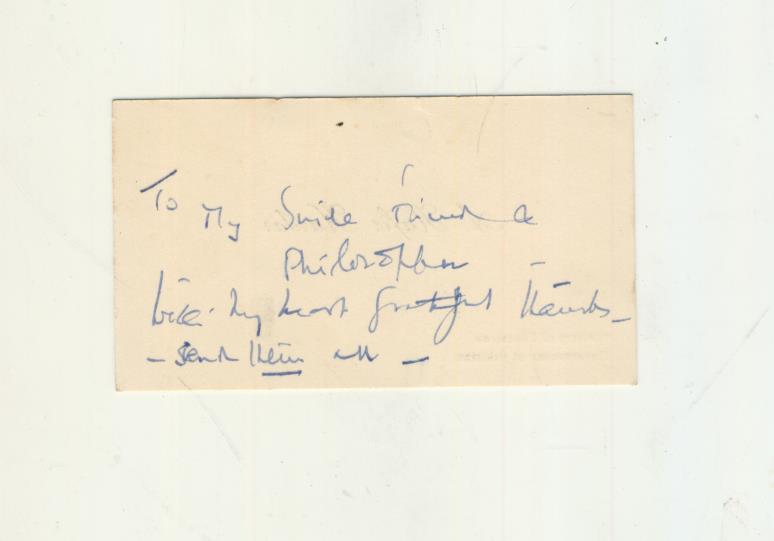 To My Guide Friend &
Philosopher –
With my most grateful thanks –
– send them all –